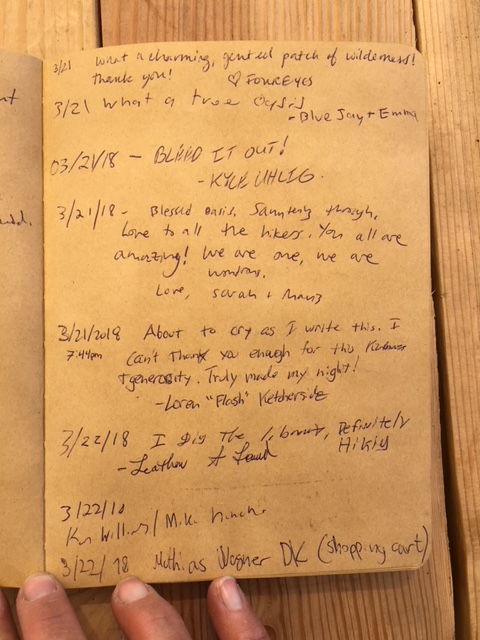 3/21 What a charming, genteel patch of wilderness!
Thank you! ♡ FOUREYES
3/21 What a true Oasis
- Blue Jay + Emma
03/21/18 - BLEED IT OUT!
- KYLE UHLIG.
3/21/18 - Blessed oasis. Sauntering through,
Love to all the hikers. You all are
amazing! We are one, we are
Love, Sarah +
3/21/2018 About to cry as I write this. I
7:44pm Can't Thank you enough for this
+ generosity. Truly made my night!
- Loren "Flash" Ketcherside
3/22/18 I Dig The library, Definitely
Hikiy
- Leather
3/22/18
/ Mike
3/22/18 Mathias Wagner DK (shopping cart)